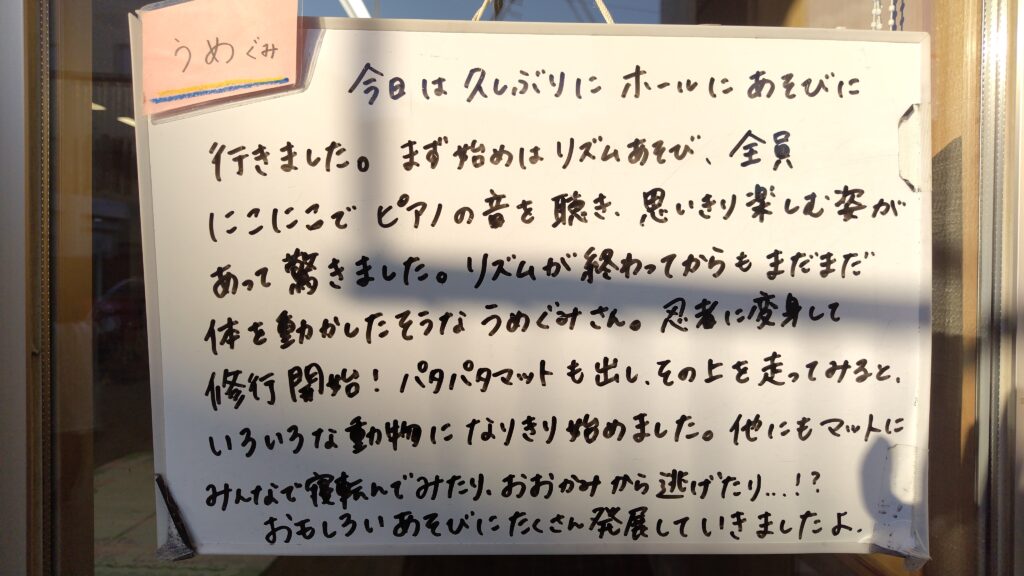 うめぐみ
今日は久しぶりにホールにあそびに
行きました。まず始めはリズムあそび、全員
にこにこでピアノの音を聴き、思いきり楽しむ姿が
あって驚きました。リズムが終わってからもまだまだ
体を動かしたそうなうめぐみさん。忍者に変身して
修行開始!パタパタマットも出し、その上を走ってみると、
いろいろな動物になりきり始めました。他にもマットに
みんなで寝転んでみたり、おおかみから逃げたり...!?
おもしろいあそびにたくさん発展していきましたよ.